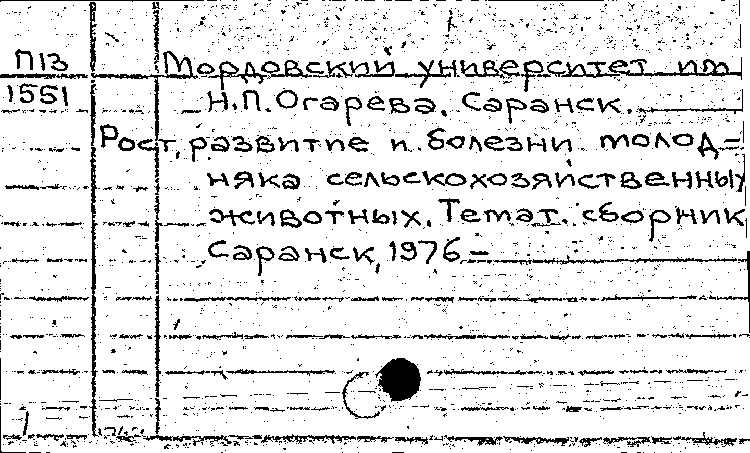 П13 Мордовский университет им
1551 Н.П.Огарева. Саранск.
Рост, развитие и болезни молод=
няка сельскохозяйственных
животных. Темат. сборник
Саранск, 1976 -